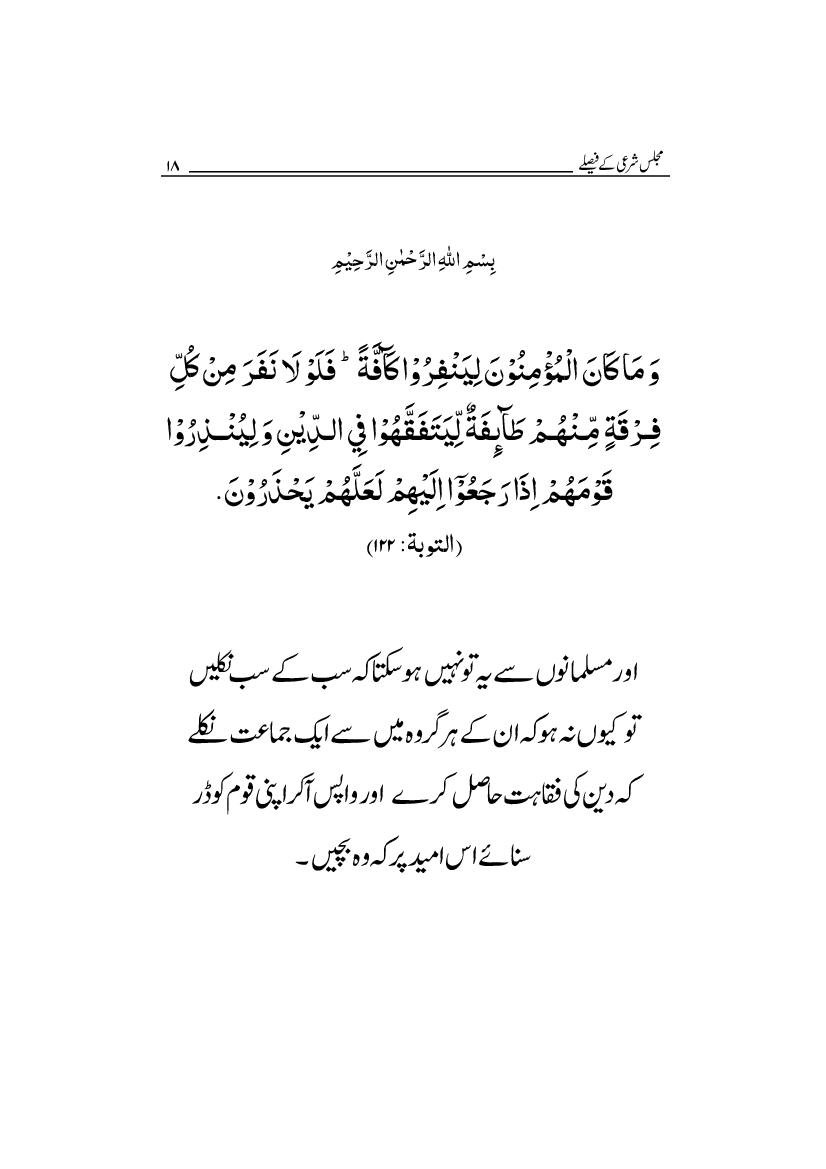 مجلس شرعی کے فیصلے ۱۸
بِسْمِ اللهِ الرَّحْمٰنِ الرَّحِیْمِ
وَ مَا كَانَ الْمُؤْمِنُوْنَ لِیَنْفِرُوْا كَآفَّةً ؕ فَلَوْ لَا نَفَرَ مِنْ كُلِّ
فِرْقَةٍ مِّنْهُمْ طَآىِٕفَةٌ لِّیَتَفَقَّهُوْا فِی الدِّیْنِ وَ لِیُنْذِرُوْا
قَوْمَهُمْ اِذَا رَجَعُوْۤا اِلَیْهِمْ لَعَلَّهُمْ یَحْذَرُوْنَ.
(التوبة: ۱۲۲)
اور مسلمانوں سے یہ تو نہیں ہو سکتا کہ سب کے سب نکلیں
تو کیوں نہ ہو کہ ان کے ہر گروہ میں سے ایک جماعت نکلے
کہ دین کی فقاہت حاصل کرے اور واپس آکر اپنی قوم کو ڈر
سنائے اس امید پر کہ وہ بچیں۔